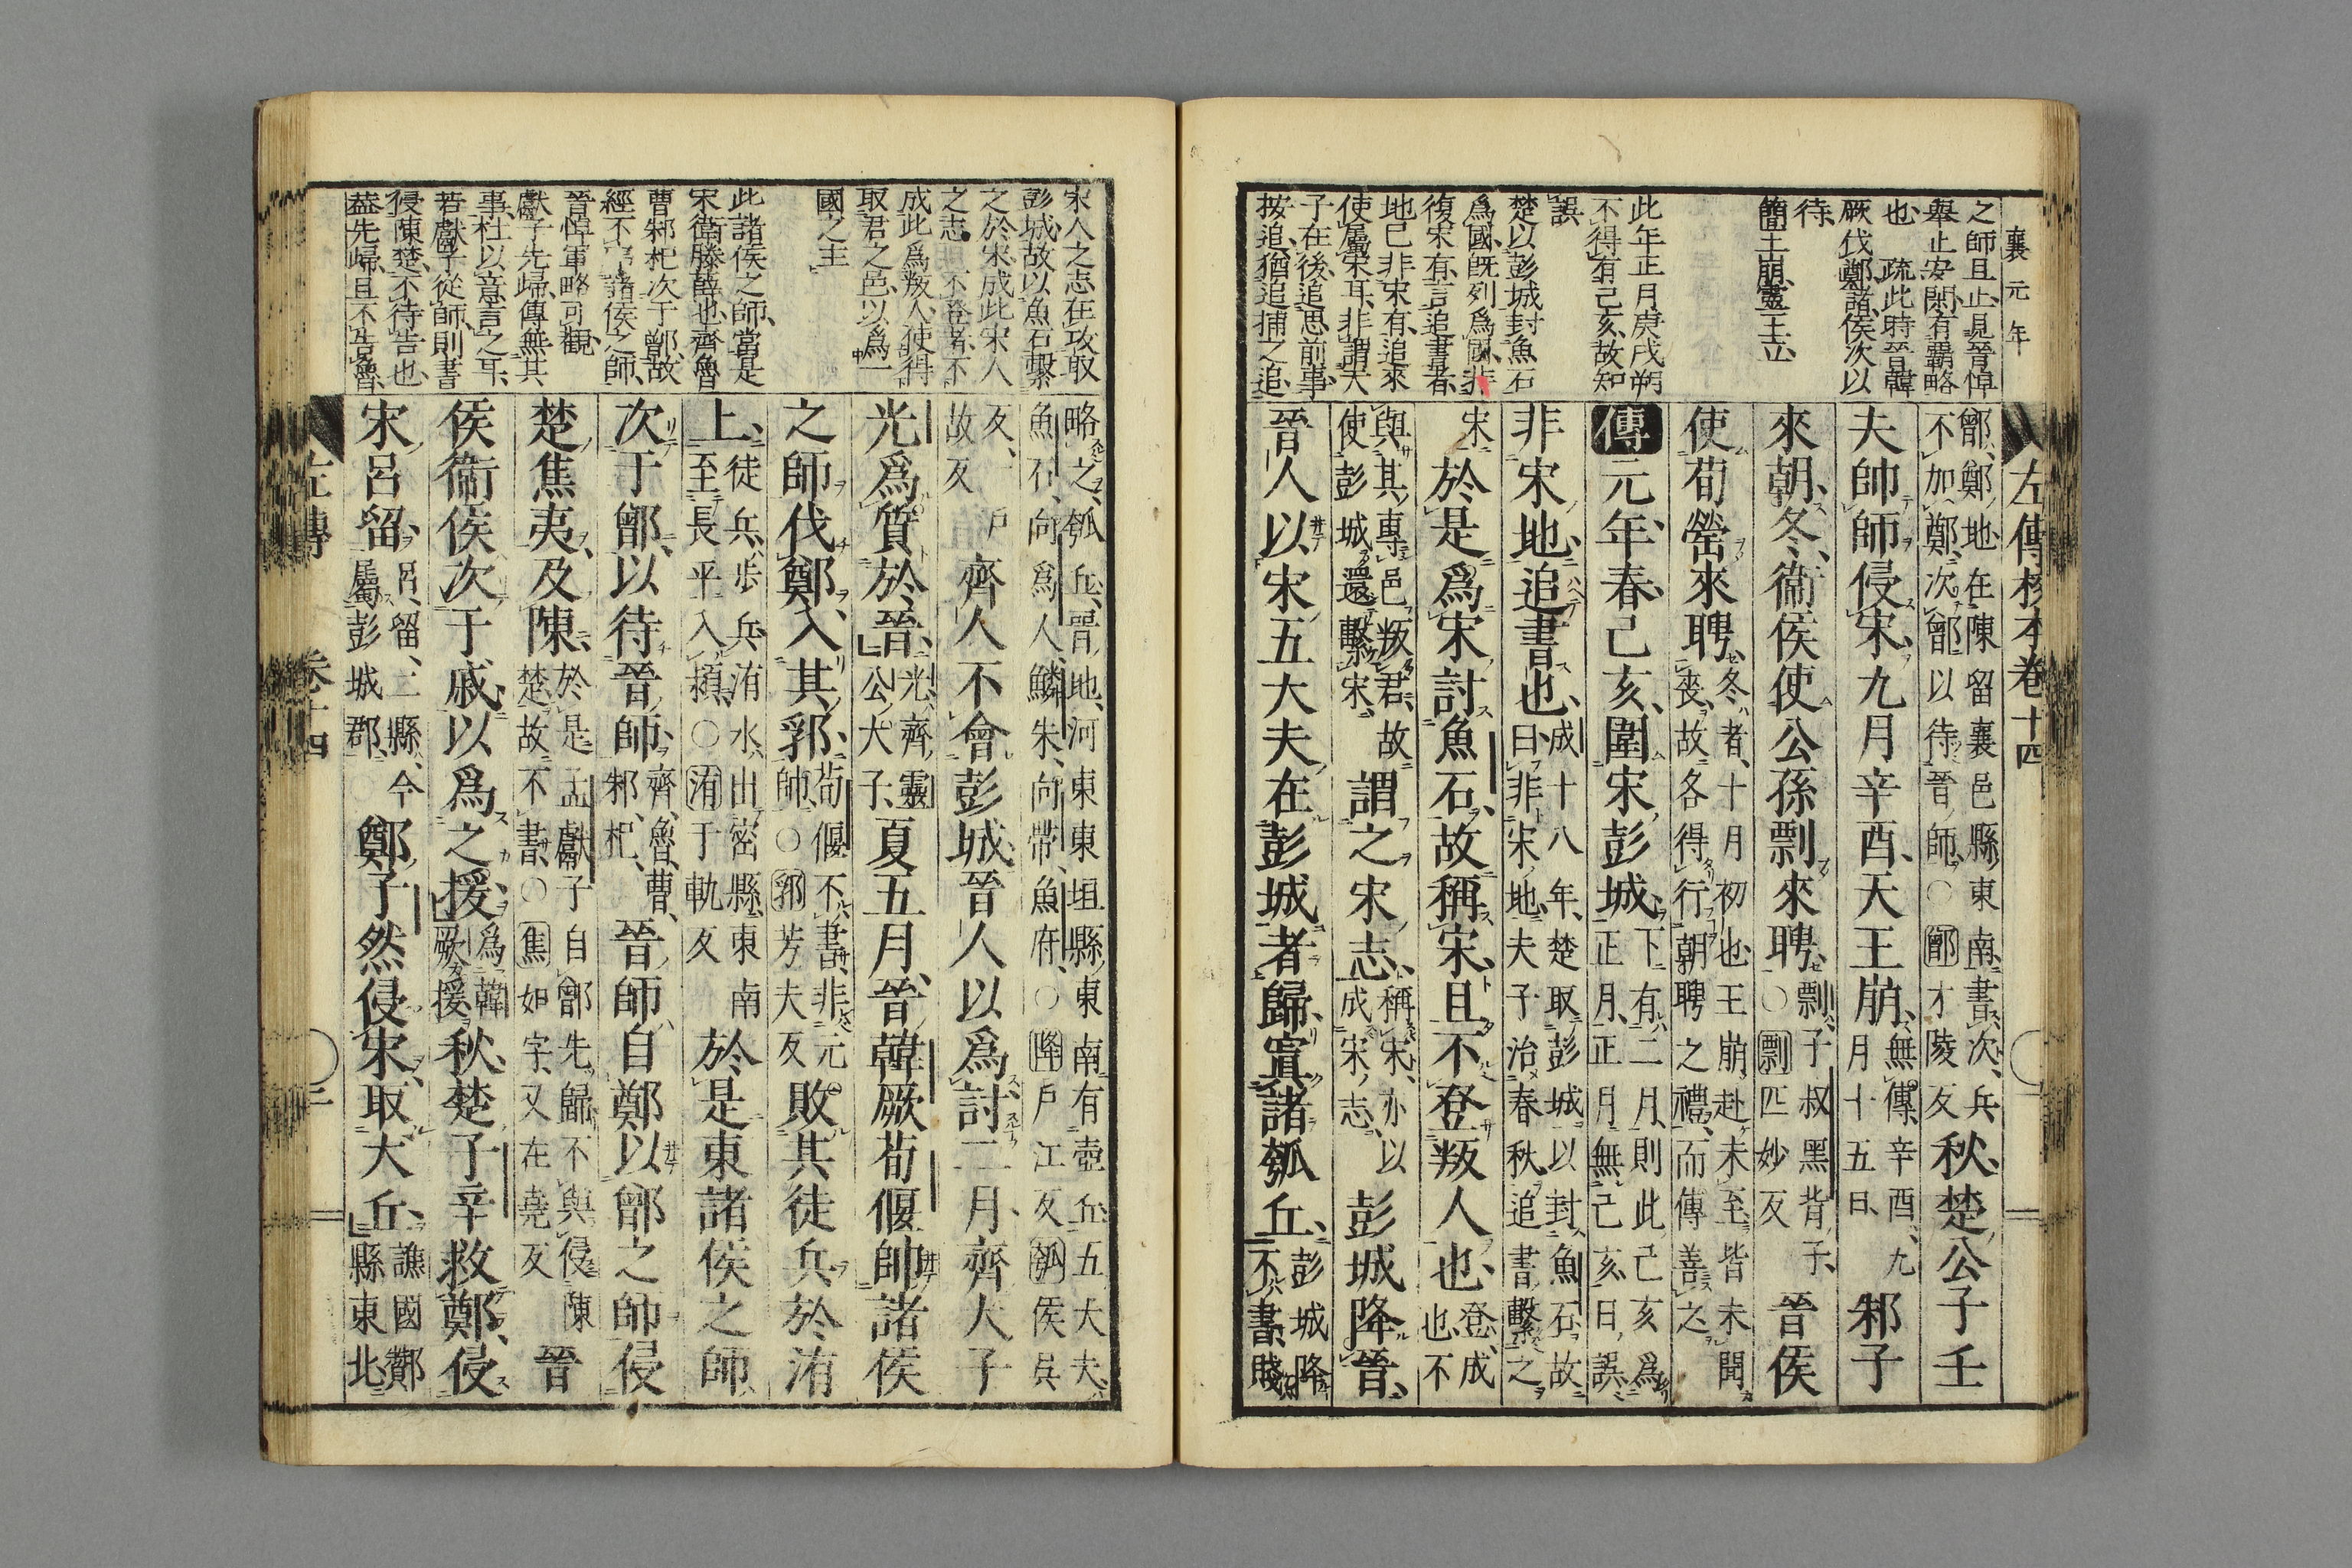 襄元年
左傳校本卷十四
之師且止見晉悼
舉止安閑有覇略
也　疏此時晉韓
厥伐鄭諸侯次以
待
簡王崩靈王立
此年正月庚戌朔
不得有己亥故知
誤
楚以彭城封魚石
爲國既列爲國非
復宋有言追書者
地已非宋有追來
使屬宋耳非謂大
子在後追思前事
按追猶追捕之追
鄫鄭地在陳留襄邑縣東南書次兵
不加鄭次鄫以待晉師○鄫才陵反
秋楚公子壬
夫帥師侵宋九月辛酉天王崩
無傳辛酉九
月十五日
邾子
來朝冬衞侯使公孫剽來聘
剽子叔黑背子
○剽匹妙反
晉侯
使荀罃來聘
冬者十月初也王崩赴未至皆未聞
喪故各得行朝聘之禮而傳善之
傳元年春己亥圍宋彭城
下有二月則此己亥爲
正月正月無己亥日誤
非宋地追書也
成十八年楚取彭城以封魚石故
曰非宋地夫子治春秋追書繫之
宋
於是爲宋討魚石故稱宋且不登叛人也
登成
也不
與其專邑叛君故
使彭城還繫宋
謂之宋志
稱宋亦以
成宋志
彭城降晉
晉人以宋五大夫在彭城者歸寘諸瓠丘
彭城降
不書賤
宋人之志在攻取
彭城故以魚石繫
之於宋成此宋人
之志　不登者不
成此爲叛人使得
取君之邑以爲一
國之主
此諸侯之師當是
宋衞滕薛也齊魯
曹邾杞次于鄫故
經不書諸侯之師
晉悼軍略可觀
獻子先歸傳無其
事杜以意言之耳
若獻子從師則書
侵陳楚不待告也
葢先歸且不告魯
略之瓠丘晉地河東東垣縣東南有壺丘五大夫
魚石向爲人鱗朱向帶魚府○降戶江反瓠侯吳
反
故反
戶
齊人不會彭城晉人以爲討二月齊大子
光爲質於晉
光齊靈
公大子
夏五月晉韓厥荀偃帥諸侯
之師伐鄭入其郛
荀偃不書非元
帥○郛芳夫反
敗其徒兵於洧
上
徒兵步兵洧水出密縣東南
至長平入潁○洧于軌反
於是東諸侯之師
次于鄫以待晉師
齊魯曹
邾杞
晉師自鄭以鄫之師侵
楚焦夷及陳
於是孟獻子自鄫先歸不與侵陳
楚故不書○焦如字又在堯反
晉
侯衞侯次于戚以爲之援
爲韓
厥援
秋楚子辛救鄭侵
宋呂留
呂留二縣今
屬彭城郡
鄭子然侵宋取大丘
譙國酇
縣東北
左傳　卷十四　二